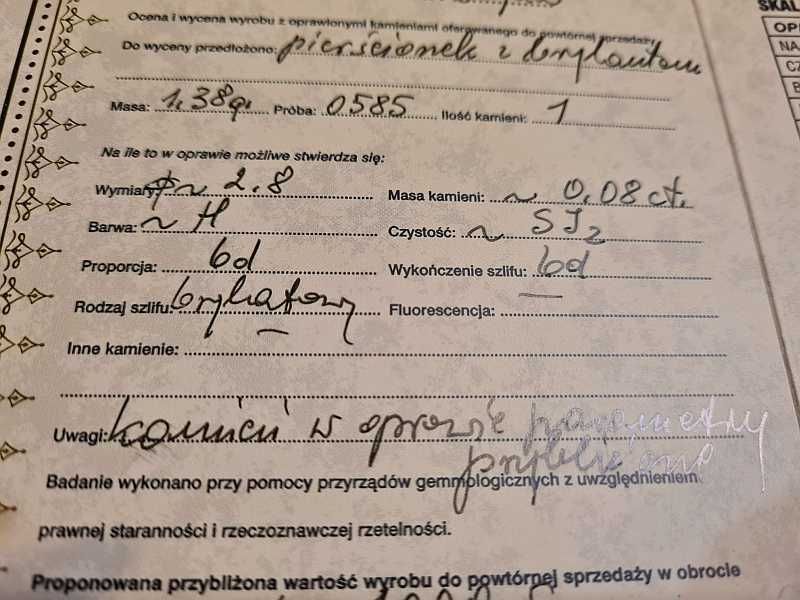 Ocena i wycena wyrobu z oprawionymi kamieniami oferowanego do powtórnej sprzedaży
Do wyceny przedłożono: pierścionek z brylantem
Masa: 1,38g. Próba: 0585 Ilość kamieni: 1
Na ile to w oprawie możliwe stwierdza się:
Wymiary: ⌀ ~ 2.8 Masa kamieni: ~ 0,08 ct.
Barwa: ~ H Czystość: ~ SI2
Proporcja: bd Wykończenie szlifu: bd
Rodzaj szlifu: brylantowy Fluorescencja: —
Inne kamienie: —
Uwagi: kamień w oprawie parametry
przybliżone
Badanie wykonano przy pomocy przyrządów gemmologicznych z uwzględnieniem
prawnej staranności i rzeczoznawczej rzetelności.
Proponowana przybliżona wartość wyrobu do powtórnej sprzedaży w obrocie
SKAL
OP
NA
CZ
B